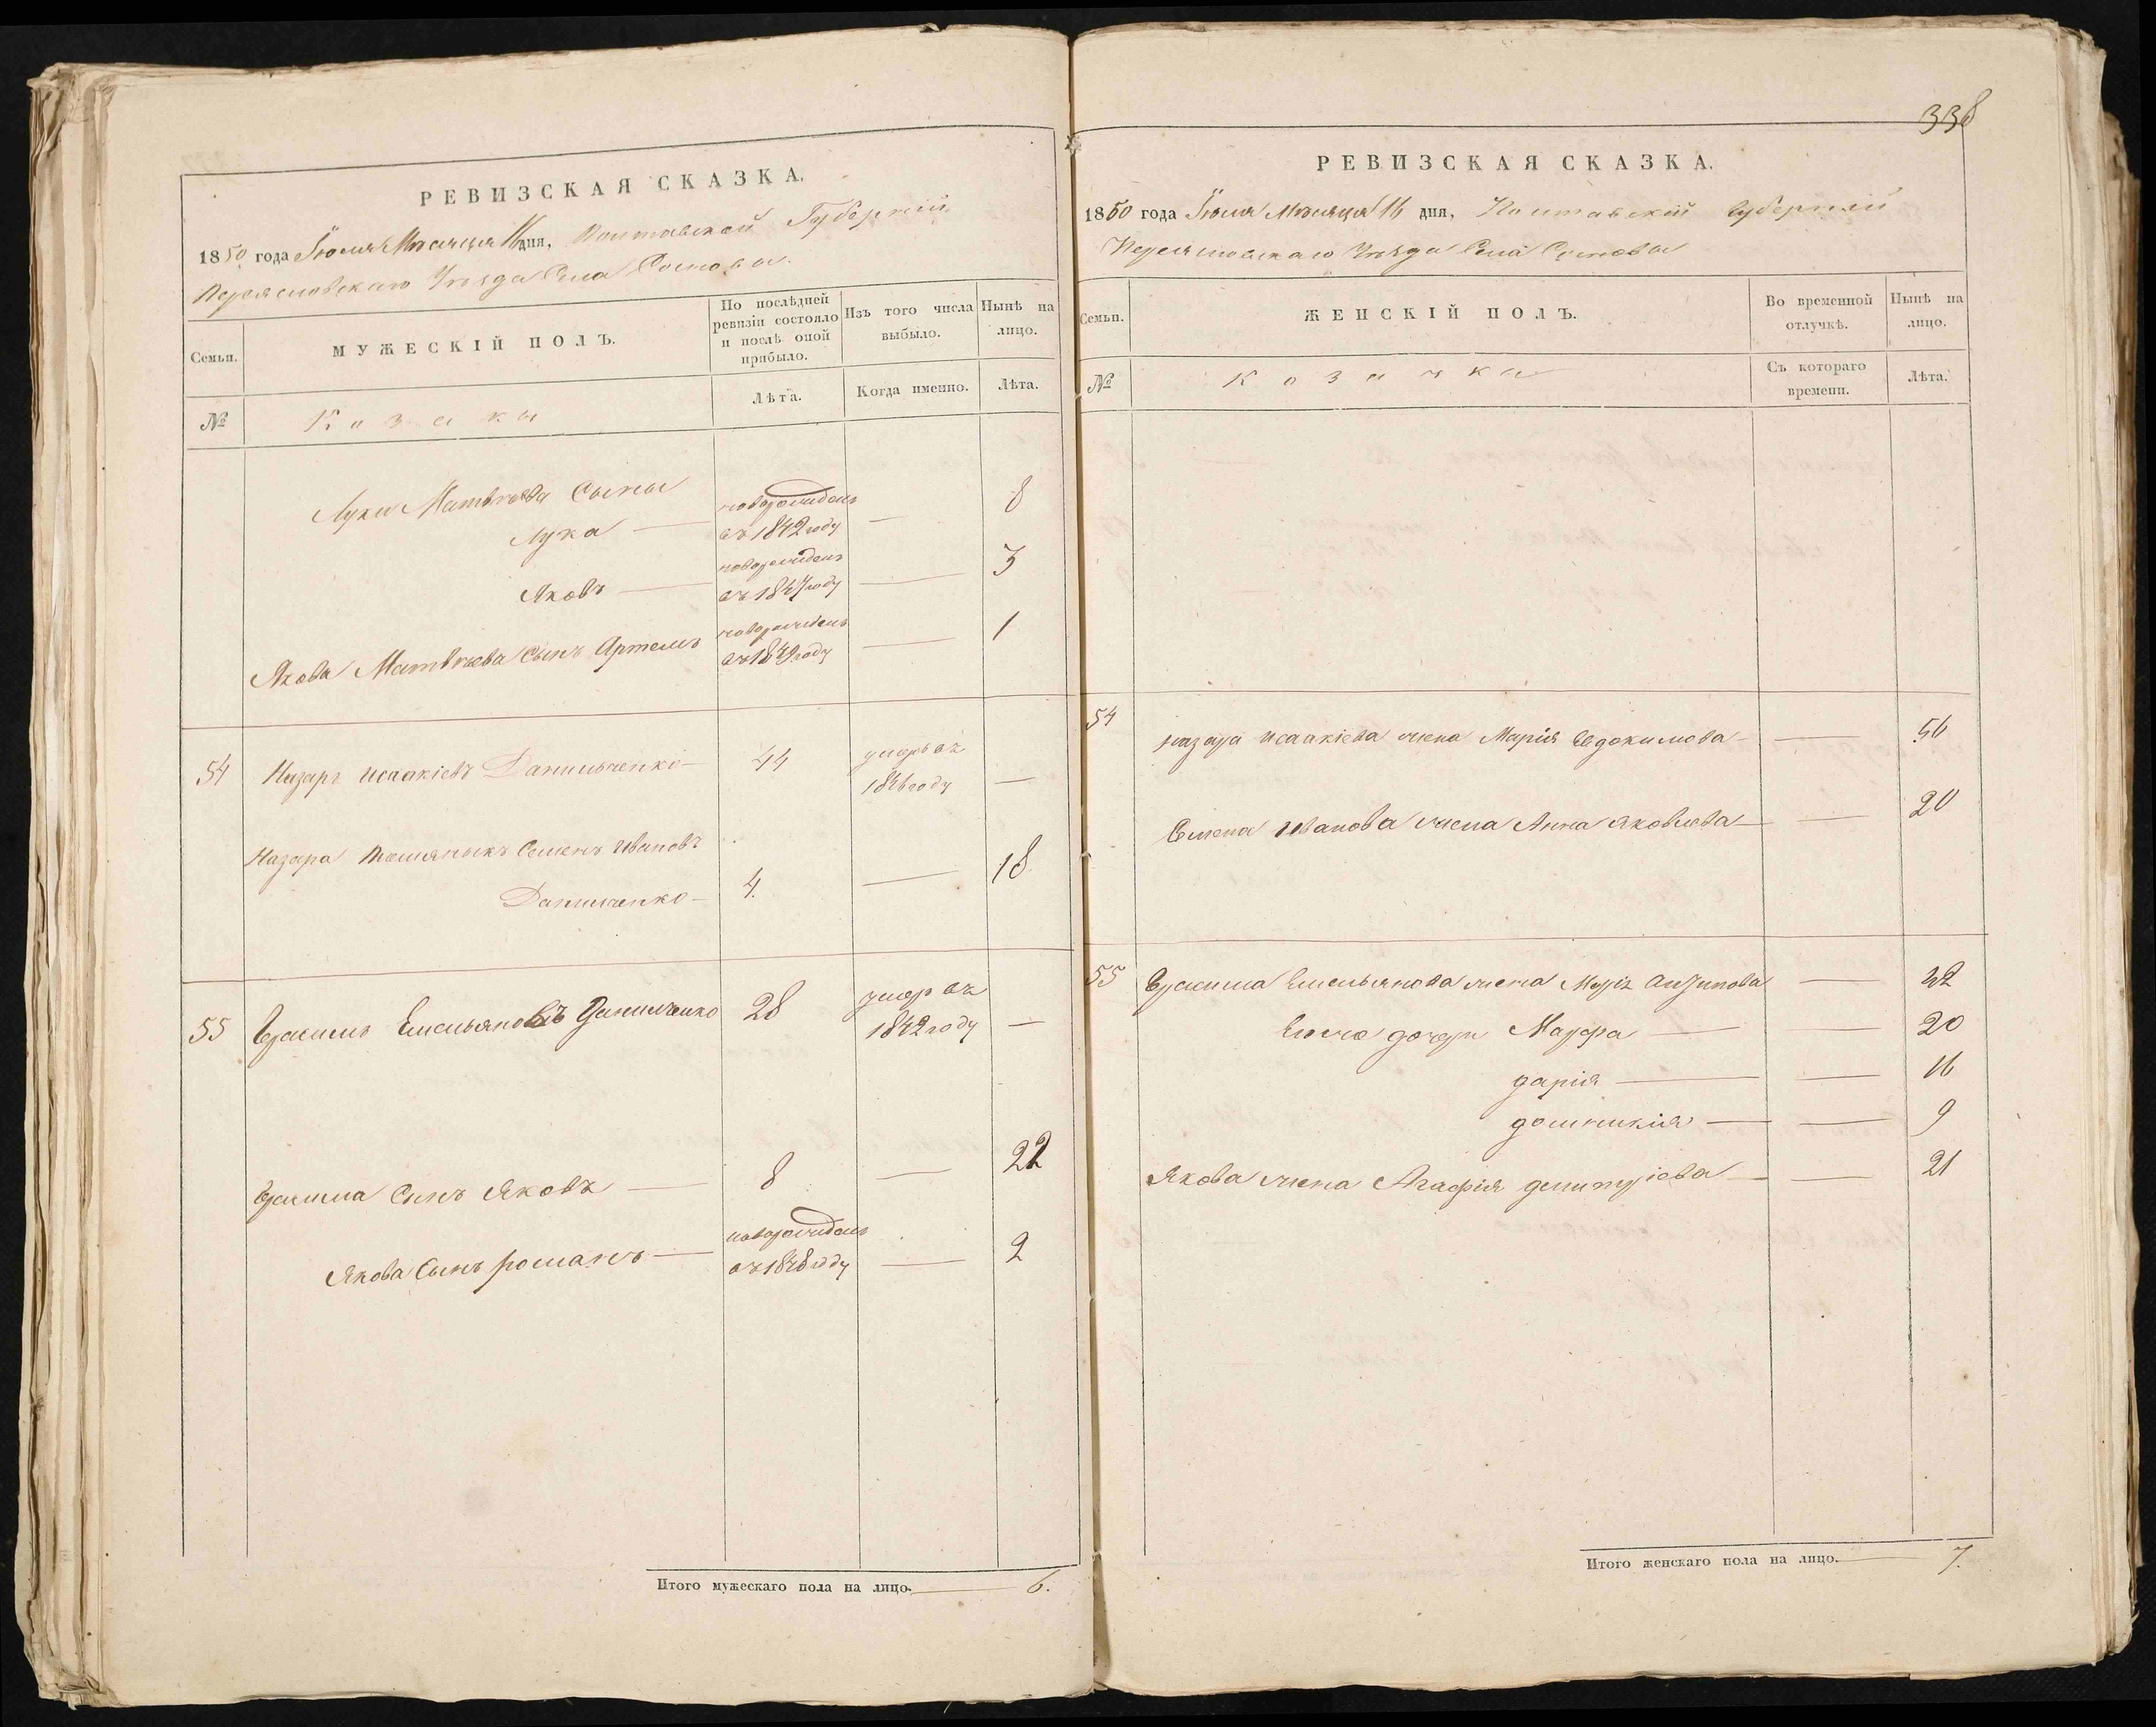 РЕВИЗСКАЯ СКАЗКА.
1850 года Іюля Мѣсяца 16 дня, Полтавской Губерніи
Переяславскаго Уѣзда Села Сосновы.
Семьи.
МУЖЕСКІЙ ПОЛЪ.
По послѣдней ревизіи состояло и послѣ оной прибыло.
Изъ того числа выбыло.
Нынѣ на лицо.
№
Козаки
Лѣта.
Когда именно.
Лѣта.
Луки Матвѣева Сыны
Лука — новорожденъ въ 1842 году — 8
Яковъ — новорожденъ въ 1847 году — 3
Якова Матвѣева Сынъ Артемъ новорожденъ въ 1849 году — 1
54 Назаръ Исаакіевъ Данильченко — 44 умеръ въ 1846 году —
Назара племяникъ Семенъ Ивановъ
Данильченко — 4. — 18
55 Герасимъ Емельяновъ Данильченко 28 умер въ 1842 году —
Герасима Сынъ Яковъ — 8 — 22
Якова Сынъ романъ — новорожденъ въ 1848 году — 2
Итого мужескаго пола на лицо. — 6.
338
РЕВИЗСКАЯ СКАЗКА.
1850 года Іюля Мѣсяца 16 дня, Полтавскій Губерніи
Переяславскаго Уѣзда Села Сосновы
Семьи.
ЖЕНСКІЙ ПОЛЪ.
Во временной отлучкѣ.
Нынѣ на лицо.
№
Козачки
Съ котораго времени.
Лѣта.
54 назара исаакіева жена Марія Евдокимова — — 56
Семена Иванова жена Анна Яковлева — — 20
55 Герасима Емельянова жена Марія — 42
Его же дочери Марфа — — 20
дарія — — 16
домникія — — 9
Якова жена Агафія димитріева — — 21
Итого женскаго пола на лицо. — 7.